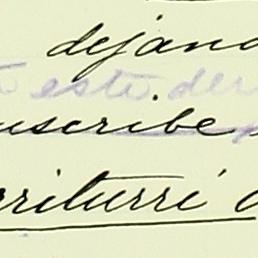 dejand
este der
uscribe
rriturri d